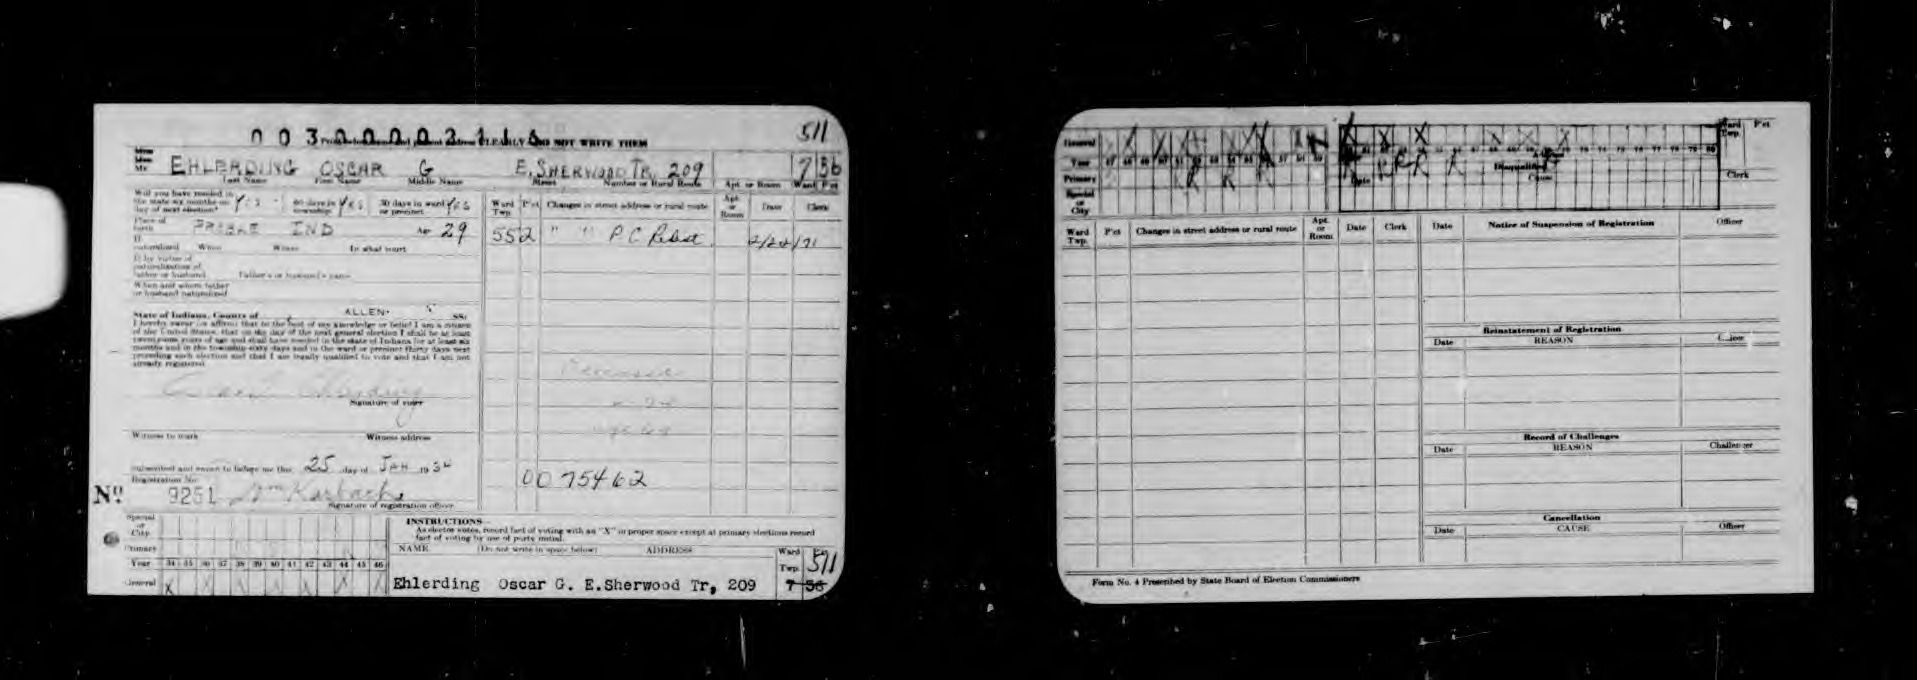 003 0000 211
Print names and present address CLEARLY DO NOT WRITE THEM
511
EHLERDING OSCAR G E. SHERWOOD TR. 209 7 56
Last Name First Name Middle Name Street Number or Rural Route Apt. or Room Ward P'ct
Will you have resided in the state six months on day of next election? YES 60 days in township YES 30 days in ward or precinct YES
Ward Twp. P'ct Changes in street address or rural route Apt. or Room Date Clerk
Place of birth PREBLE IND Age 29
552 " " P.C. 2/24/71
If naturalized When Where In what court
If by virtue of naturalization of father or husband Father's or husband's name
When and where father or husband naturalized
State of Indiana, County of ALLEN ss:
I hereby swear or affirm that to the best of my knowledge or belief I am a citizen
of the United States, that on the day of the next general election I shall be at least
twenty-one years of age and shall have resided in the state of Indiana for at least six
months and in the township sixty days and in the ward or precinct thirty days next
preceding such election and that I am legally qualified to vote and that I am not
already registered
Deceased
Oscar G. Ehlerding
Signature of voter
Witness to mark Witness address
Subscribed and sworn to before me this 25 day of JAN 1934
0075462
Registration No.
No. 9261 Wm Karbach
Signature of registration officer
Special or City
Primary
Year 34 35 36 37 38 39 40 41 42 43 44 45 46
General X X X X X X X
INSTRUCTIONS
As elector votes, record fact of voting with an "X" in proper space except at primary elections record
fact of voting by use of party initial.
NAME (Do not write in space below) ADDRESS Ward Twp. P'ct
511
Ehlerding Oscar G. E.Sherwood Tr, 209 7 56
General
Year
Primary
Special or City
Disqualified
Date Cause
Ward Twp. P'ct
Clerk
Ward Twp. P'ct Changes in street address or rural route Apt. or Room Date Clerk
Date Notice of Suspension of Registration Officer
Reinstatement of Registration
Date REASON Officer
Record of Challenges
Date REASON Challenger
Cancellation
Date CAUSE Officer
Form No. 4 Prescribed by State Board of Election Commissioners